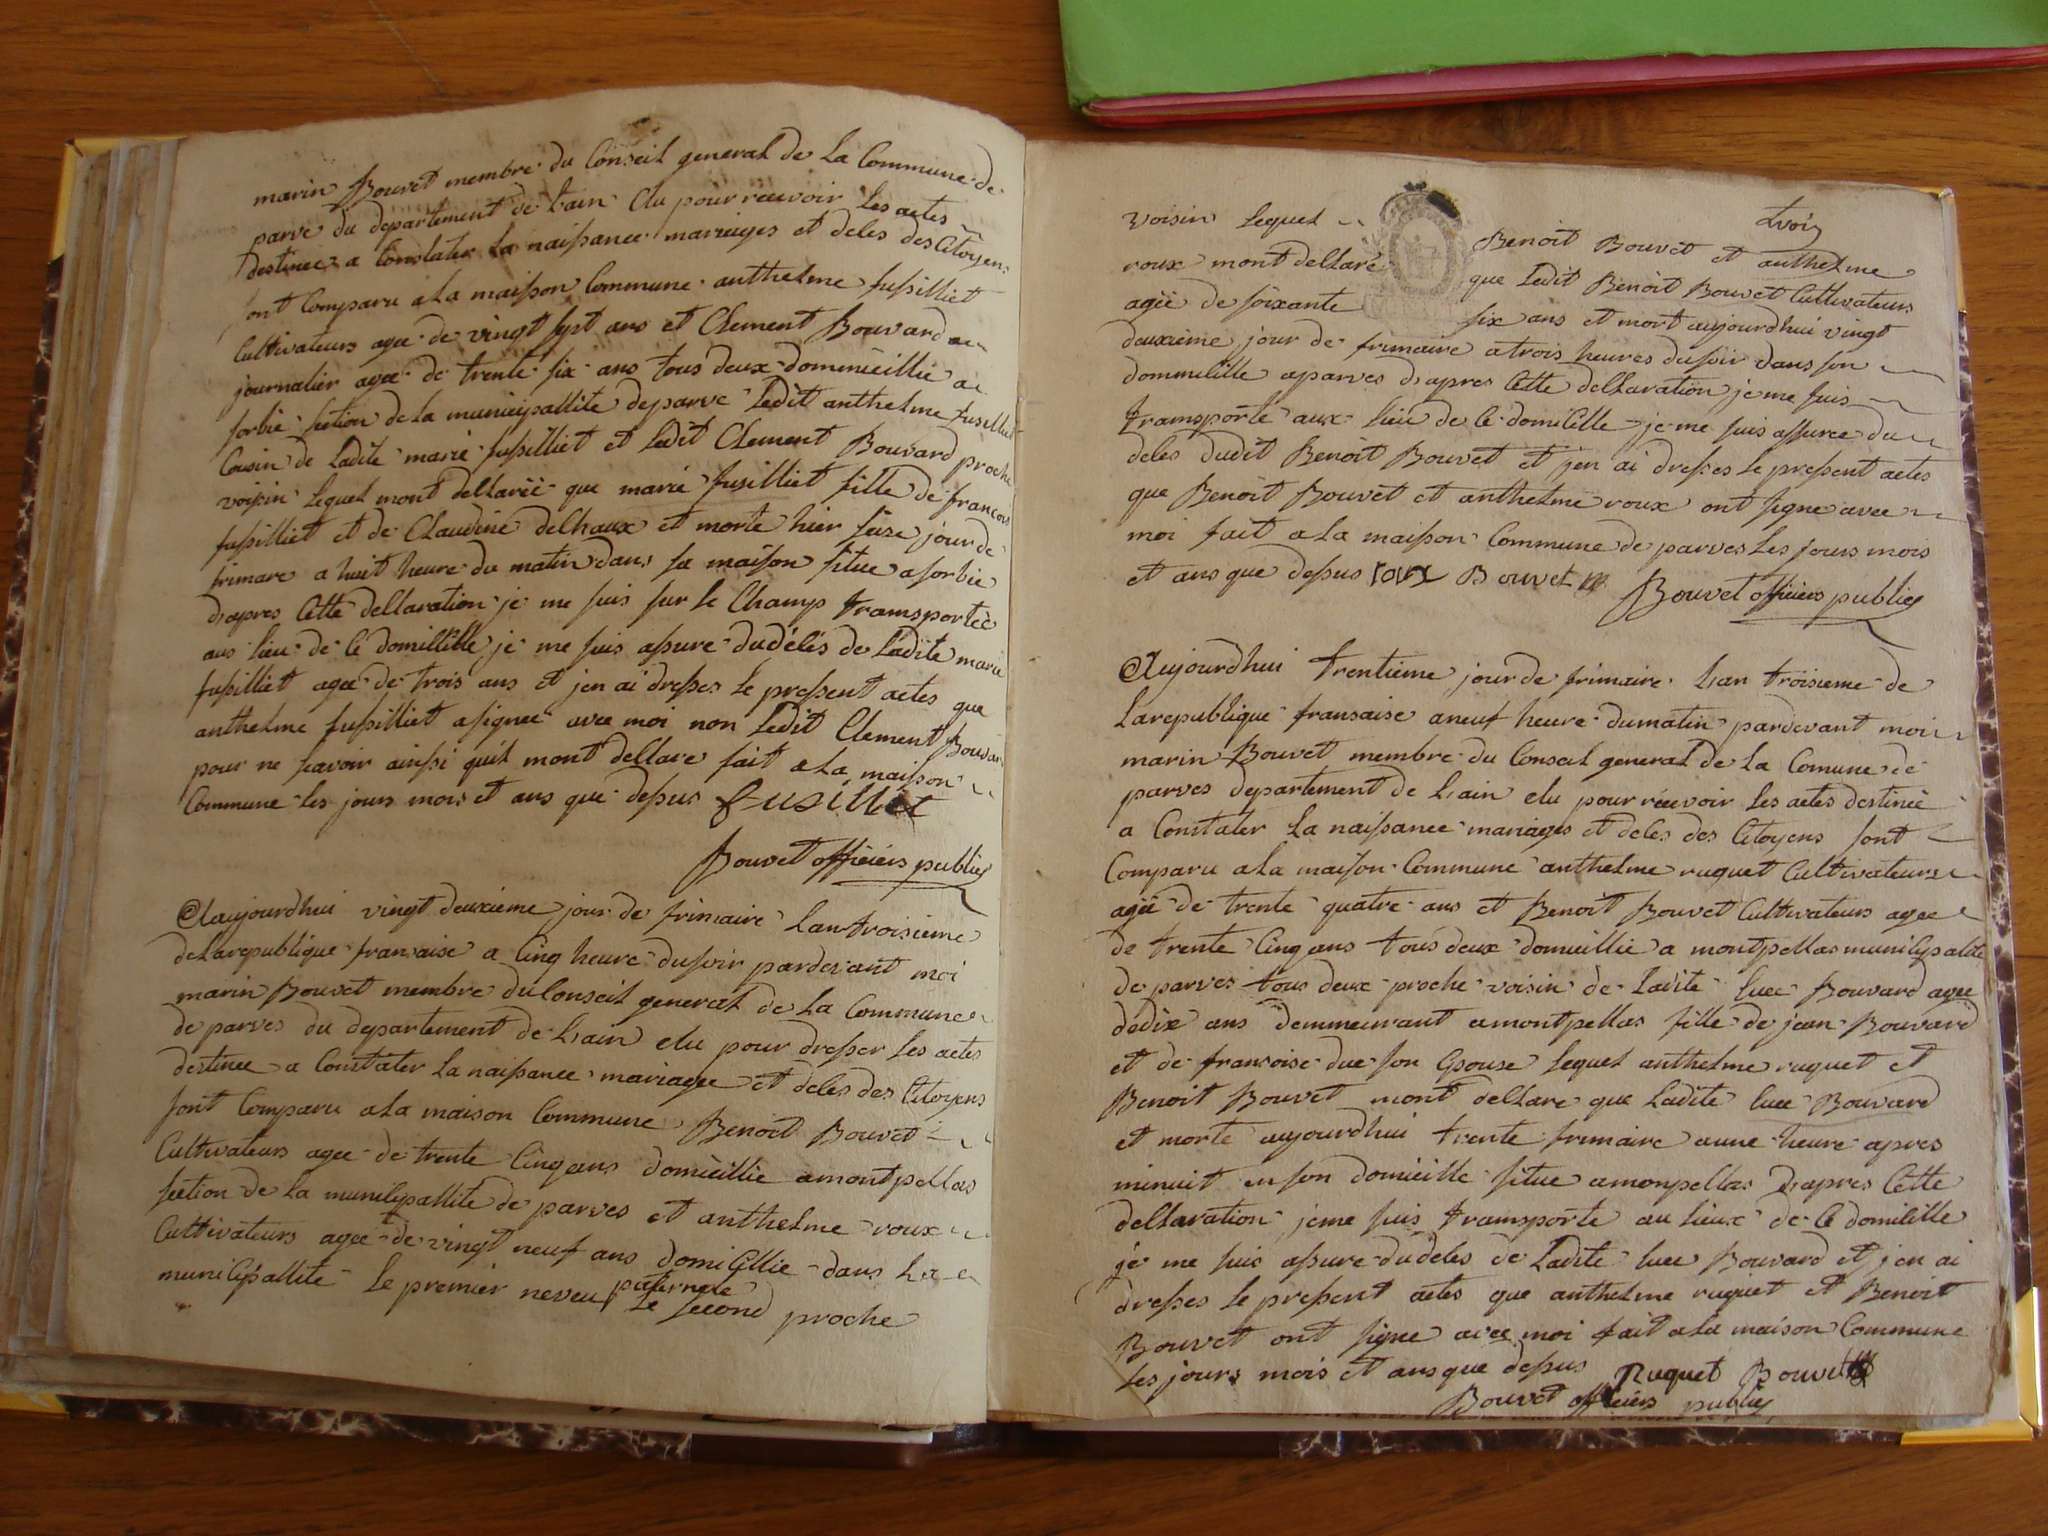 marin Bouvet membre du Conseil general de La Commune de
parve du departement de Lain Elu pour recevoir Les actes
destinee a Constater La naissance mariages et deces des Citoyens
sont Comparu a La maison Commune anthelme fusilliet
Cultivateurs agee de vingt sept ans et Clement Bouvard
journalier agee de trente six ans tous deux domicillie a
sorbie section de la municipallite de parve Ledit anthelme fusilliet
Cousin de Ladite marie fusilliet et Ledit Clement Bouvard proche
voisin Lequel mont dellaréé que marie fusilliet fille de francois
fusilliet et de Claudine delhaux et morte hier seize jour de
frimare a huit heure du matin dans sa maison situe a sorbie
dapres Cette dellaration je me suis sur le Champ transportéé
aus Lieu de Ce domicille je me suis assure du déces de Ladite marie
fusilliet agee de trois ans et jen ai dresses Le pressent actes que
anthelme fusilliet a signee avec moi non Ledit Clement Bouvard
pour ne savoir ainssi quil mont dellare fait a La maison
Commune Les jours mois et ans que dessus fusilliet
Bouvet officiers publicq
Aujourdhui vingt deuxieme jour de frimaire Lan troisieme
de Larepublique fransaise a Cinq heure dusoir pardevant moi
marin Bouvet membre du Conseil general de La Commune
de parves du departement de Lain elu pour dresser Les actes
destinee a Constater La naissance mariagee et deces des Citoyens
sont Comparu a La maison Commune Benoit Bouvet
Cultivateurs agee de trente Cinq ans domicillie a montpellas
section de La municipallite de parves et anthelme roux
Cultivateurs agee de vingt neuf ans domicillie dans La
municipallite Le premier neveu paternele Le second proche
voisin Lequel Benoit Bouvet et anthelme
roux mont dellaré que Ledit Benoit Bouvet Cultivateurs
agéé de soixante six ans et mort aujourdhui vingt
deuxieme jour de frimaire a trois heures dusoir dans son
dommicille a parves dapres Cette dellaration je me suis
transporte aux Lieu de Ce domicille je me suis assuree du
deces dudit Benoit Bouvet et jen ai dresses Le pressent actes
que Benoit Bouvet et anthelme roux ont signe avec
moi fait a La maison Commune de parves Les jours mois
et ans que dessus roux Bouvet
Bouvet officiers publicq
Aujourdhui trentieme jour de frimaire Lan troisieme de
Larepublique fransaise a neuf heure du matin pardevant moi
marin Bouvet membre du Conseil general de La Comune de
parves departement de Lain elu pour recevoir Les actes destinéé
a Constater La naissance mariages et deces des Citoyens sont
Comparu a La maison Commune anthelme ruquet Cultivateurs
agéé de trente quatre ans et Benoit Bouvet Cultivateurs agee
de trente Cinq ans tous deux domicillie a montpellas municipalité
de parves tous deux proche voisin de Ladite Luce Bouvard agee
de dix ans demmeurant a montpellas fille de jean Bouvard
et de francoise duc son Epouse Lequel anthelme ruquet et
Benoit Bouvet mont dellare que Ladite Luce Bouvard
et morte aujourdhui trente frimaire a une heure apres
minuit en son domicille situe a monpellas Dapres Cette
dellaration je me suis transporte au Lieux de Ce domicille
je me suis assure du deces de Ladite Luce Bouvard et jen ai
dresses Le pressent actes que anthelme ruquet et Benoit
Bouvet ont signe avec moi fait a La maison Commune
Les jours mois et ans que dessus Ruquet Bouvet
Bouvet officiers publicq